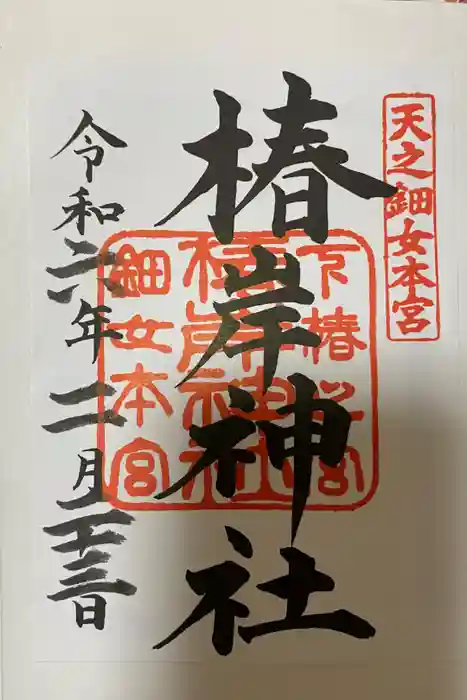 天之鈿女本宮
椿岸神社
椿岸神社
鈿女本宮
令和六年二月二十三日